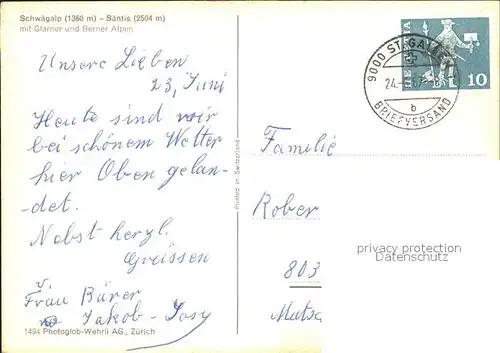 Schwägalp (1360 m) – Säntis (2504 m)
mit Glarner und Berner Alpen
Unsere Lieben
23, Juni
Heute sind wir
bei schönem Wetter
hier Oben gelan-
det.
Nebst herzl.
Grüssen
v.
Frau Bürer
Jakob - Josy
1494 Photoglob-Wehrli AG., Zürich
Printed in Switzerland
9000 ST. GALLEN
24.
b
BRIEFVERSAND
HELVETIA
10
Familie
Rober
803
Mutsc
privacy protection
DATENSCHUTZ